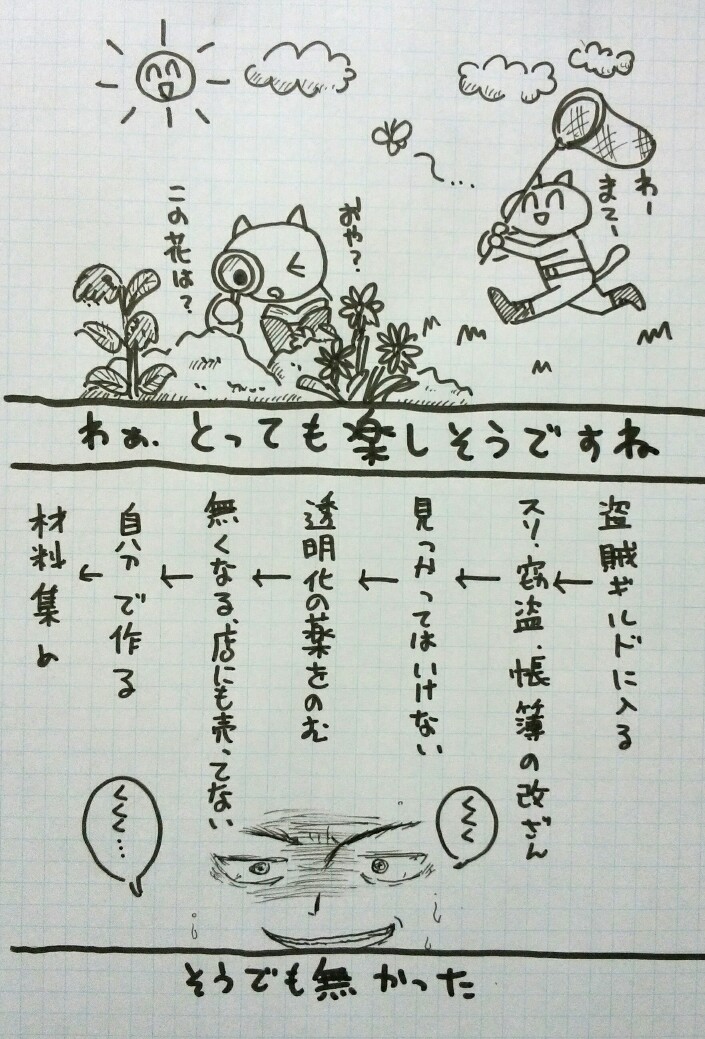 わー
まてー
おや?
この花は?
わぁ、とっても楽しそうですね
盗賊ギルドに入る
←
スリ・窃盗・帳簿の改ざん
←
見つかってはいけない
←
透明化の薬をのむ
←
無くなる、店にも売ってない
←
自分で作る
←
材料集め
くくく
くくく…
そうでも無かった